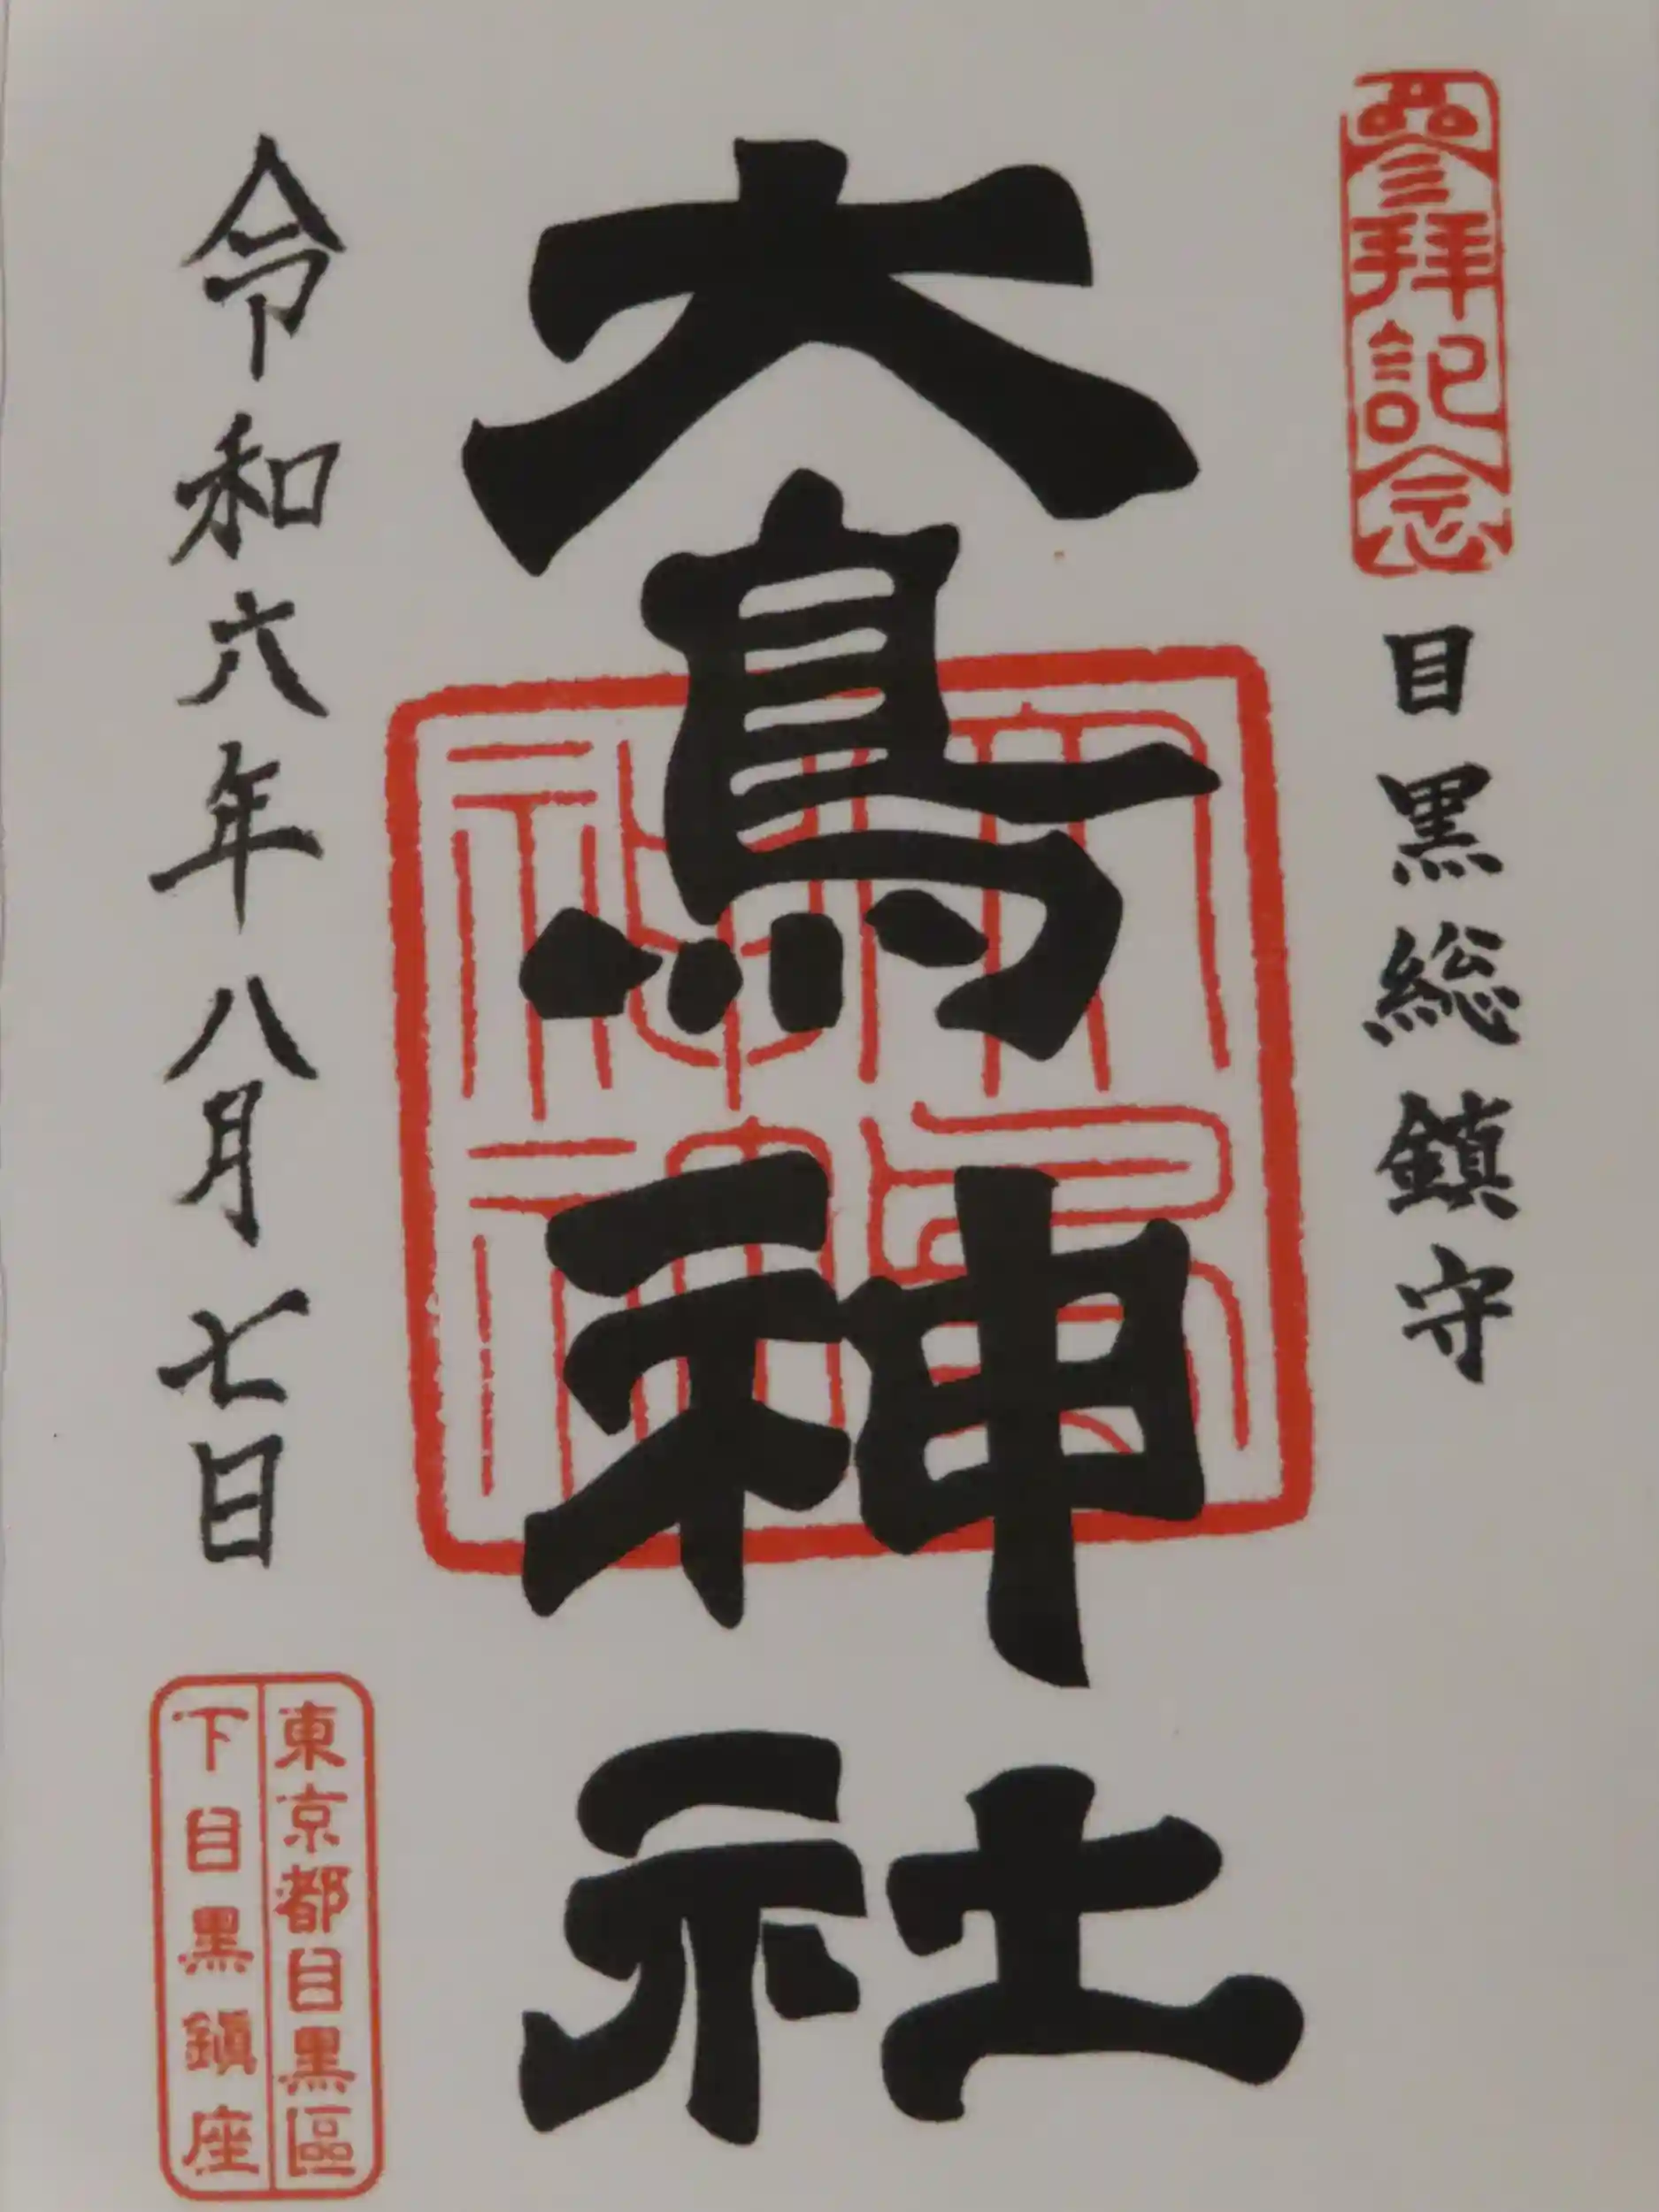 參拜記念
目黒総鎮守
大鳥神社
令和六年八月七日
東京都目黒區
下目黒鎮座